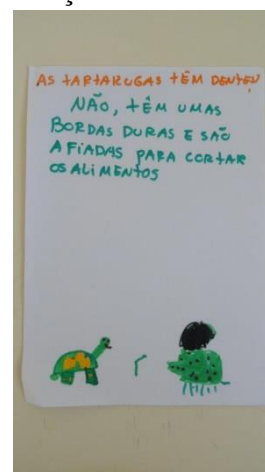 AS TARTARUGAS TÊM DENTES
NÃO, TÊM UMAS
BORDAS DURAS E SÃO
AFIADAS PARA CORTAR
OS ALIMENTOS